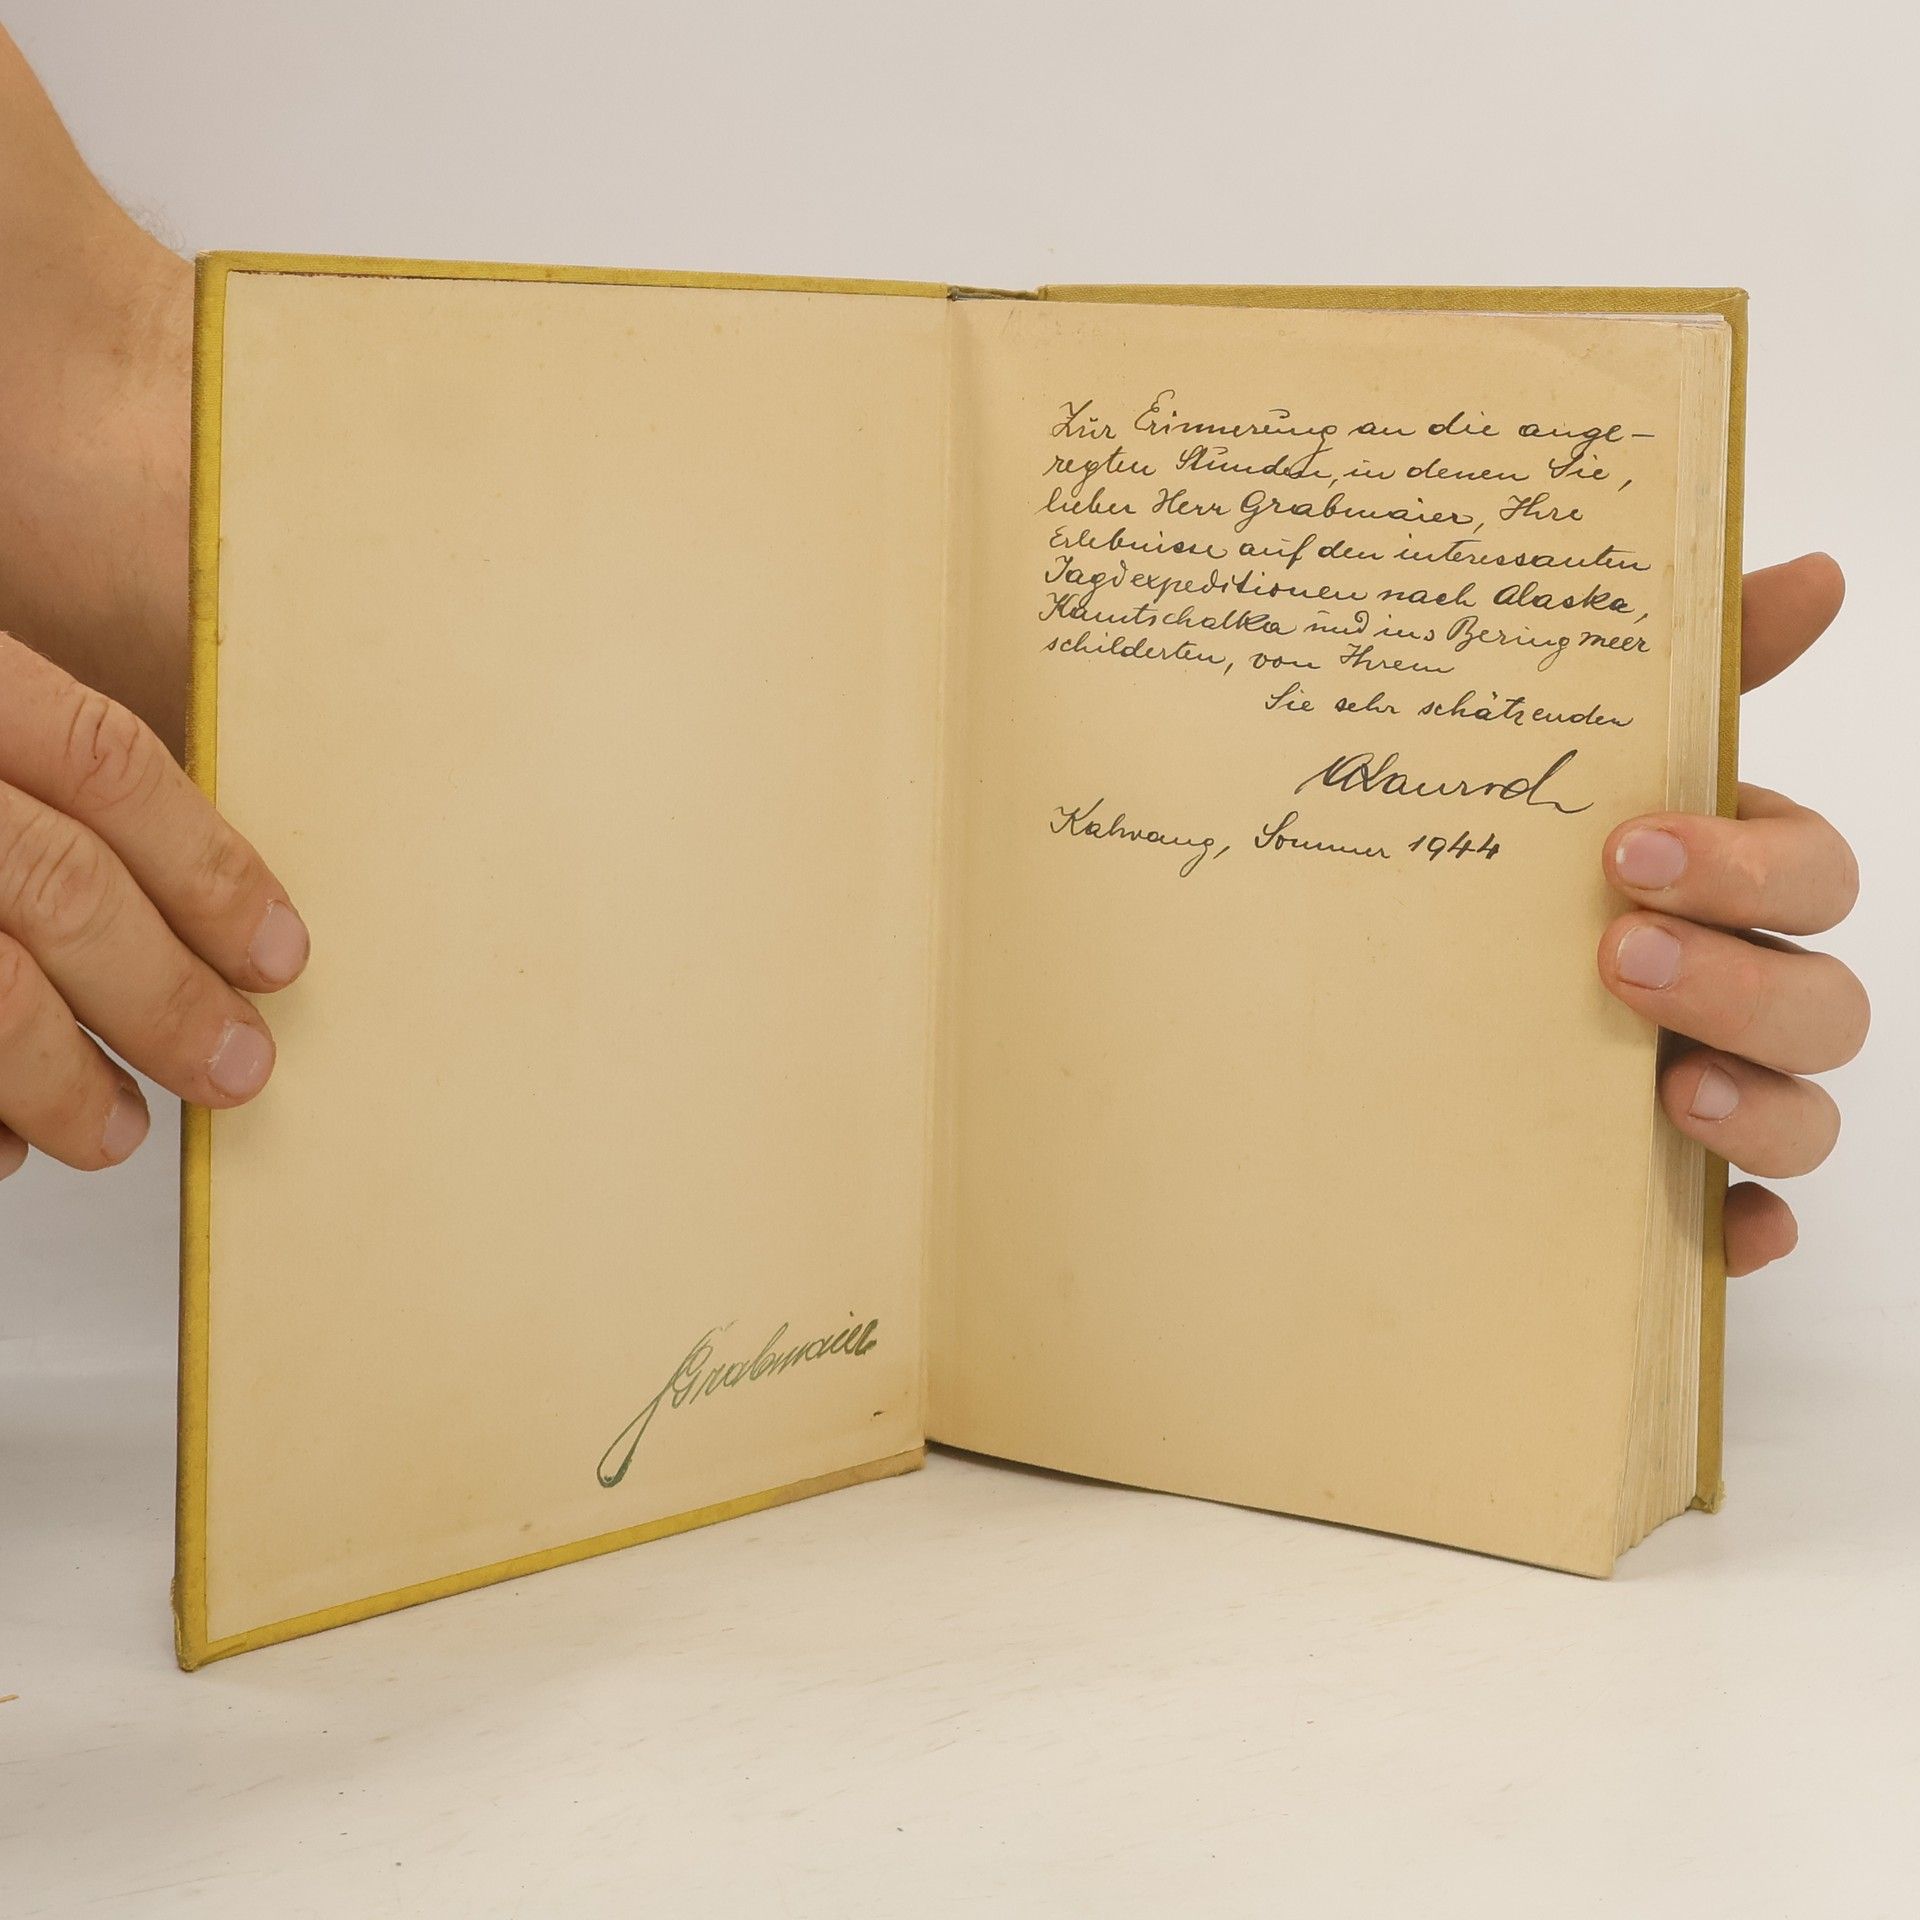 Grabmaier
Zur Erinnerung an die ange-
regten Stunden, in denen Sie,
lieber Herr Grabmaier, Ihre
Erlebnisse auf den interessanten
Jagdexpeditionen nach Alaska,
Kamtschatka und ins Beringmeer
schilderten, von Ihrem
Sie sehr schätzenden
Kalwang, Sommer 1944